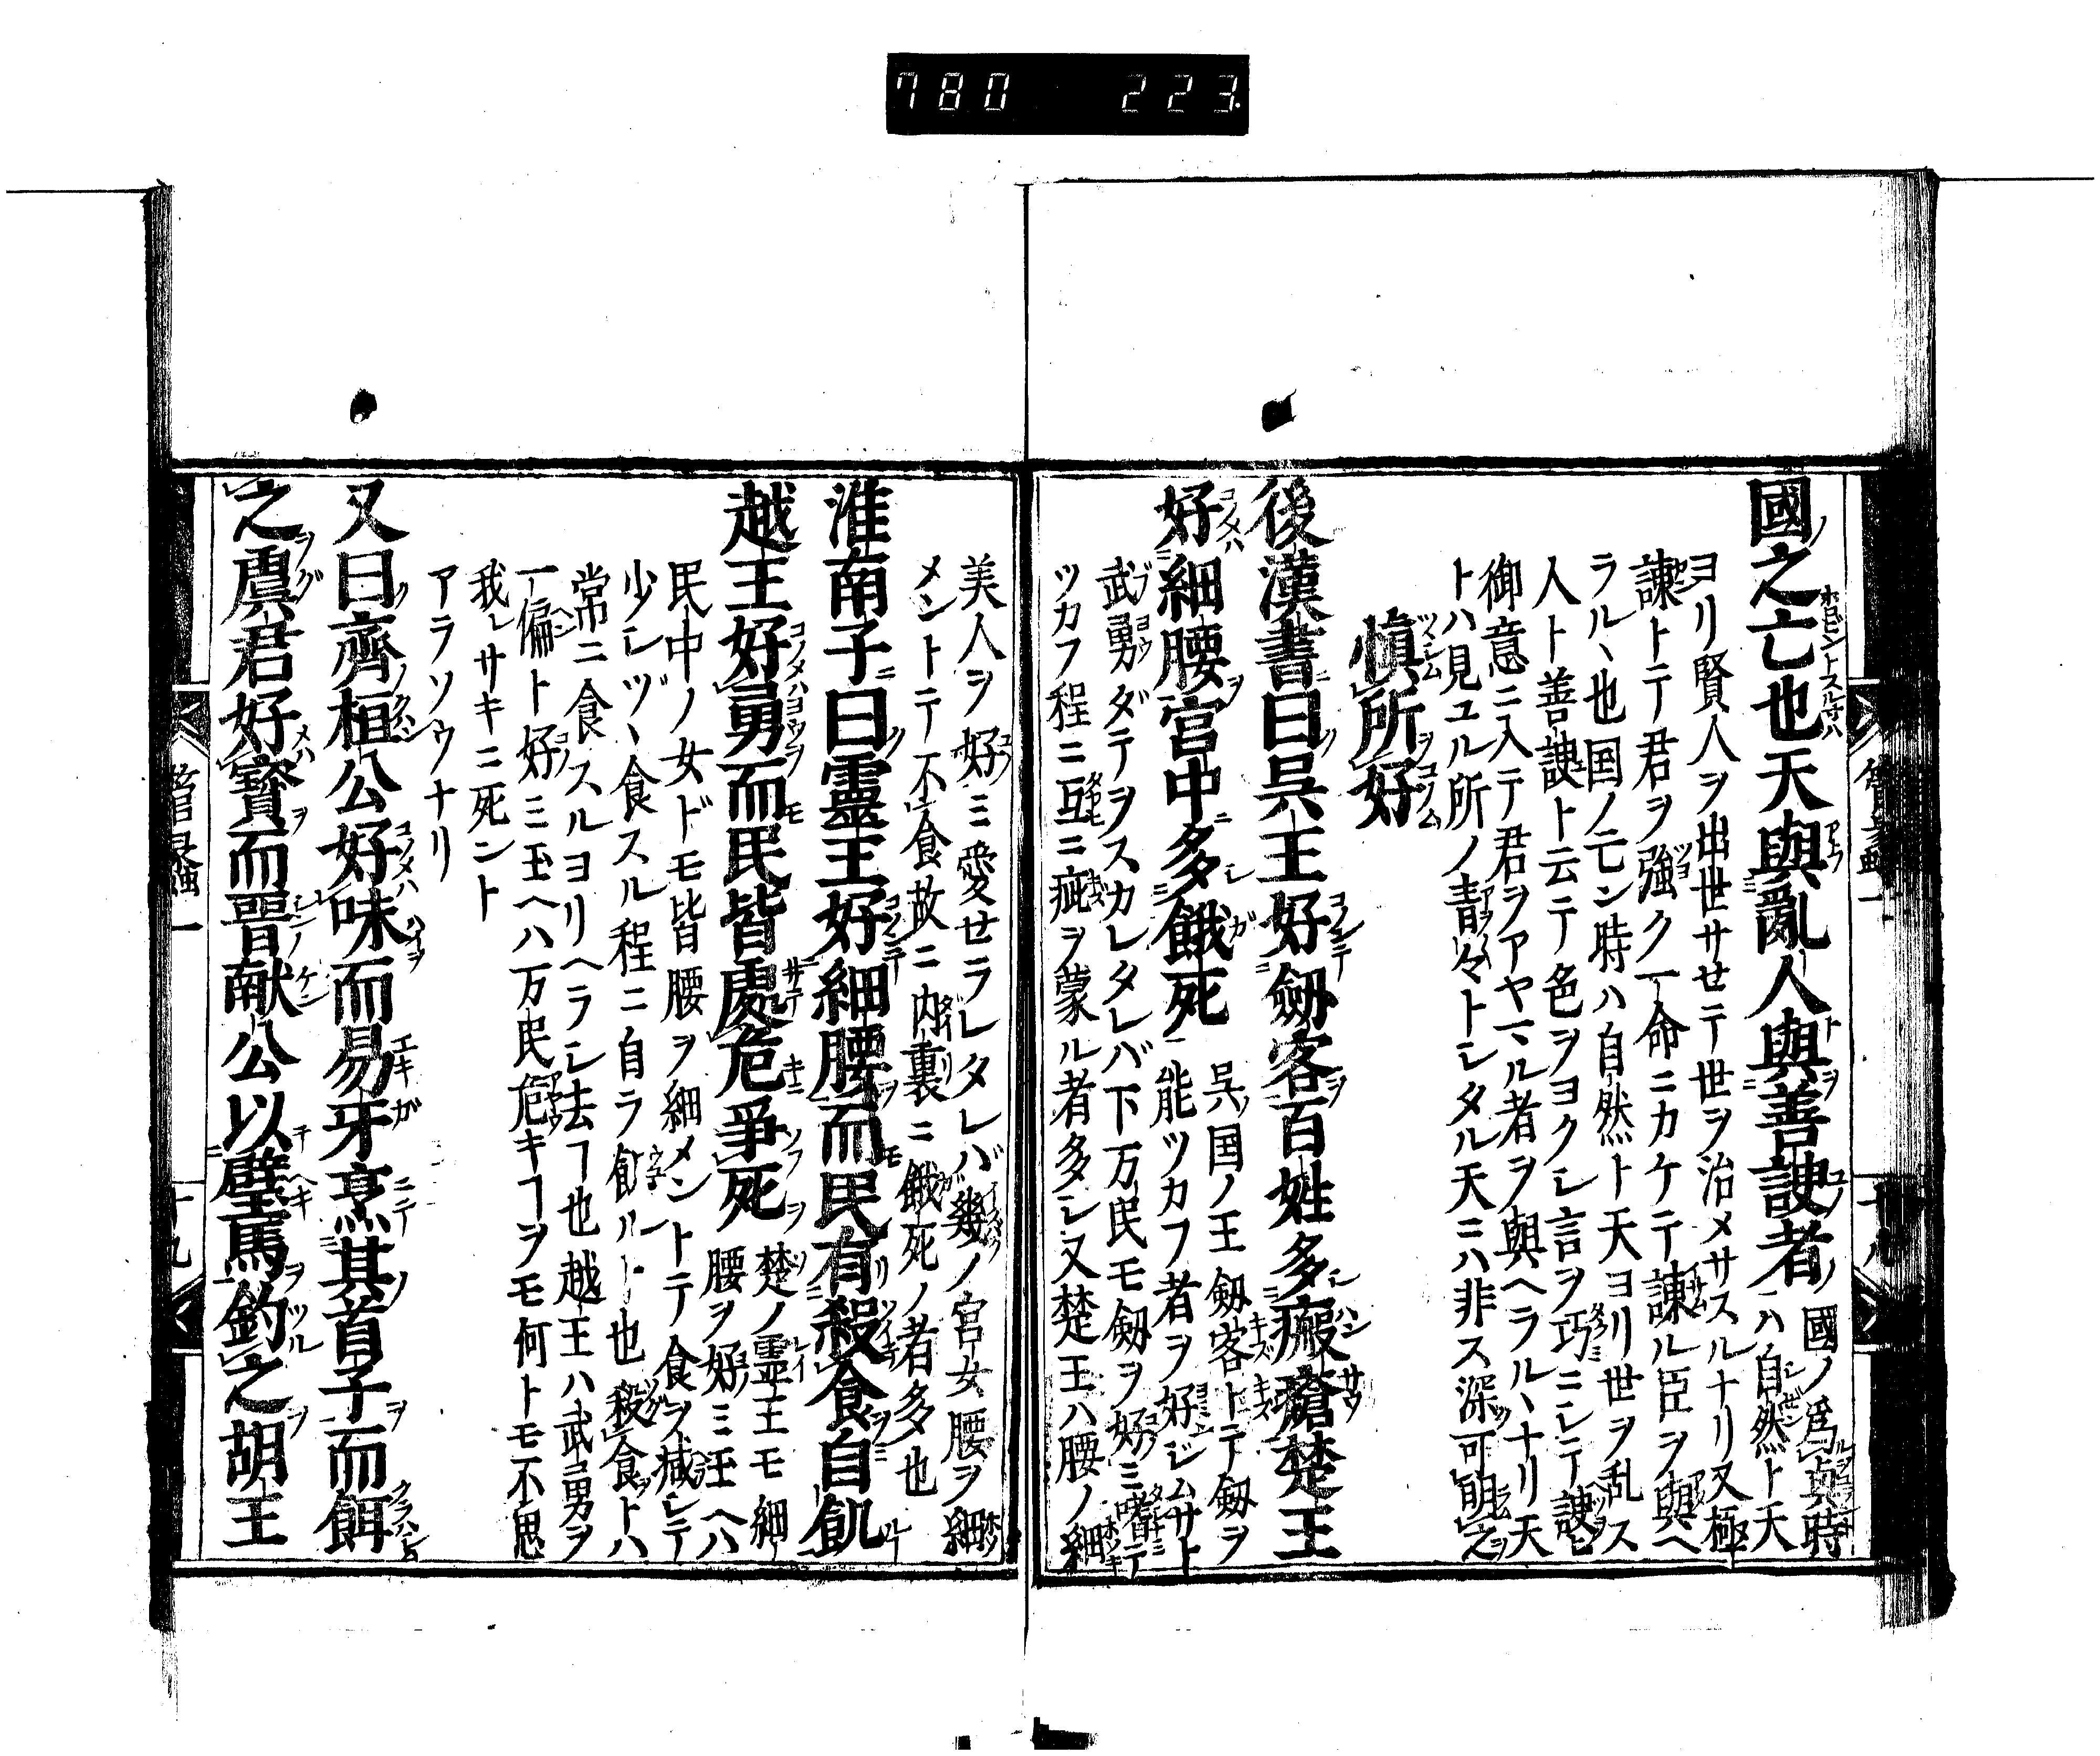 780 223
國之亡也天與亂人與善諛者
國ノ爲與時
ハ自然ト天
ヨリ賢人ヲ出世サセテ世ヲ治メサスルナリ又極
諫トテ君ヲ強ク一命ニカケテ諫ル臣ヲ與ヘ
ラルヽ也国ノ亡ン時ハ自然ト天ヨリ世ヲ乱ス
人ト善諛ト云テ色ヲヨクシ言ヲ巧ニシテ諛ヒ
御意ニ入テ君ヲアヤマル者ヲ與ヘラルヽナリ天
トハ見ユル所ノ青々トシタル天ニハ非ス深可明之
愼所好
後漢書曰呉王好劔客百姓多瘢瘡楚王
好細腰宮中多餓死
呉国ノ王劔客トテ劔ヲ
能ツカフ者ヲ好ジムサト
武勇ダテヲスカレタレバ下万民モ劔ヲ好ミ嗜テ
ツカフ程ニ互ニ疵ヲ蒙ル者多シ又楚王ハ腰ノ細
美人ヲ好ミ愛セラレタレバ幾ノ宮女腰ヲ細
メントテ不食故ニ内裏ニ餓死ノ者多也
淮南子曰靈王好細腰而民有殺食自飢
越王好勇而民皆處危爭死
楚ノ霊王モ細
腰ヲ好ミ玉ヘハ
民中ノ女ドモ皆腰ヲ細メントテ食ヲ減シテ
少シヅヽ食スル程ニ自ラ飢ルト也殺食トハ
常ニ食スルヨリヘラシ去ヿ也越王ハ武勇ヲ
一偏ト好ミ玉ヘハ万民危キヿヲモ何トモ不思
我レサキニ死ント
アラソウナリ
又曰齊桓公好味而易牙烹其首子而餌
之虞君好寳而晋献公以璧馬釣之胡王